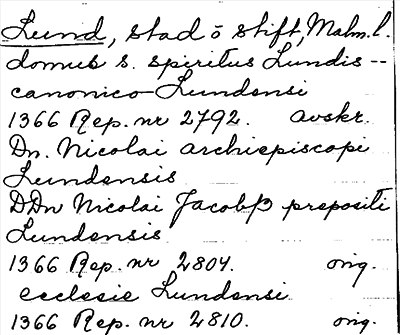 Lund, stad o stift, Malm. l.
domus s. spiritus Lundis --
canonico Lundensi
1366 Rep. nr 2792. avskr.
Dn. Nicolai archiepiscopi
Lundensis
DDn Nicolai Jacobß prepositi
Lundensis
1366 Rep. nr 2804. orig.
ecclesie Lundensi
1366 Rep. nr 2810. orig.